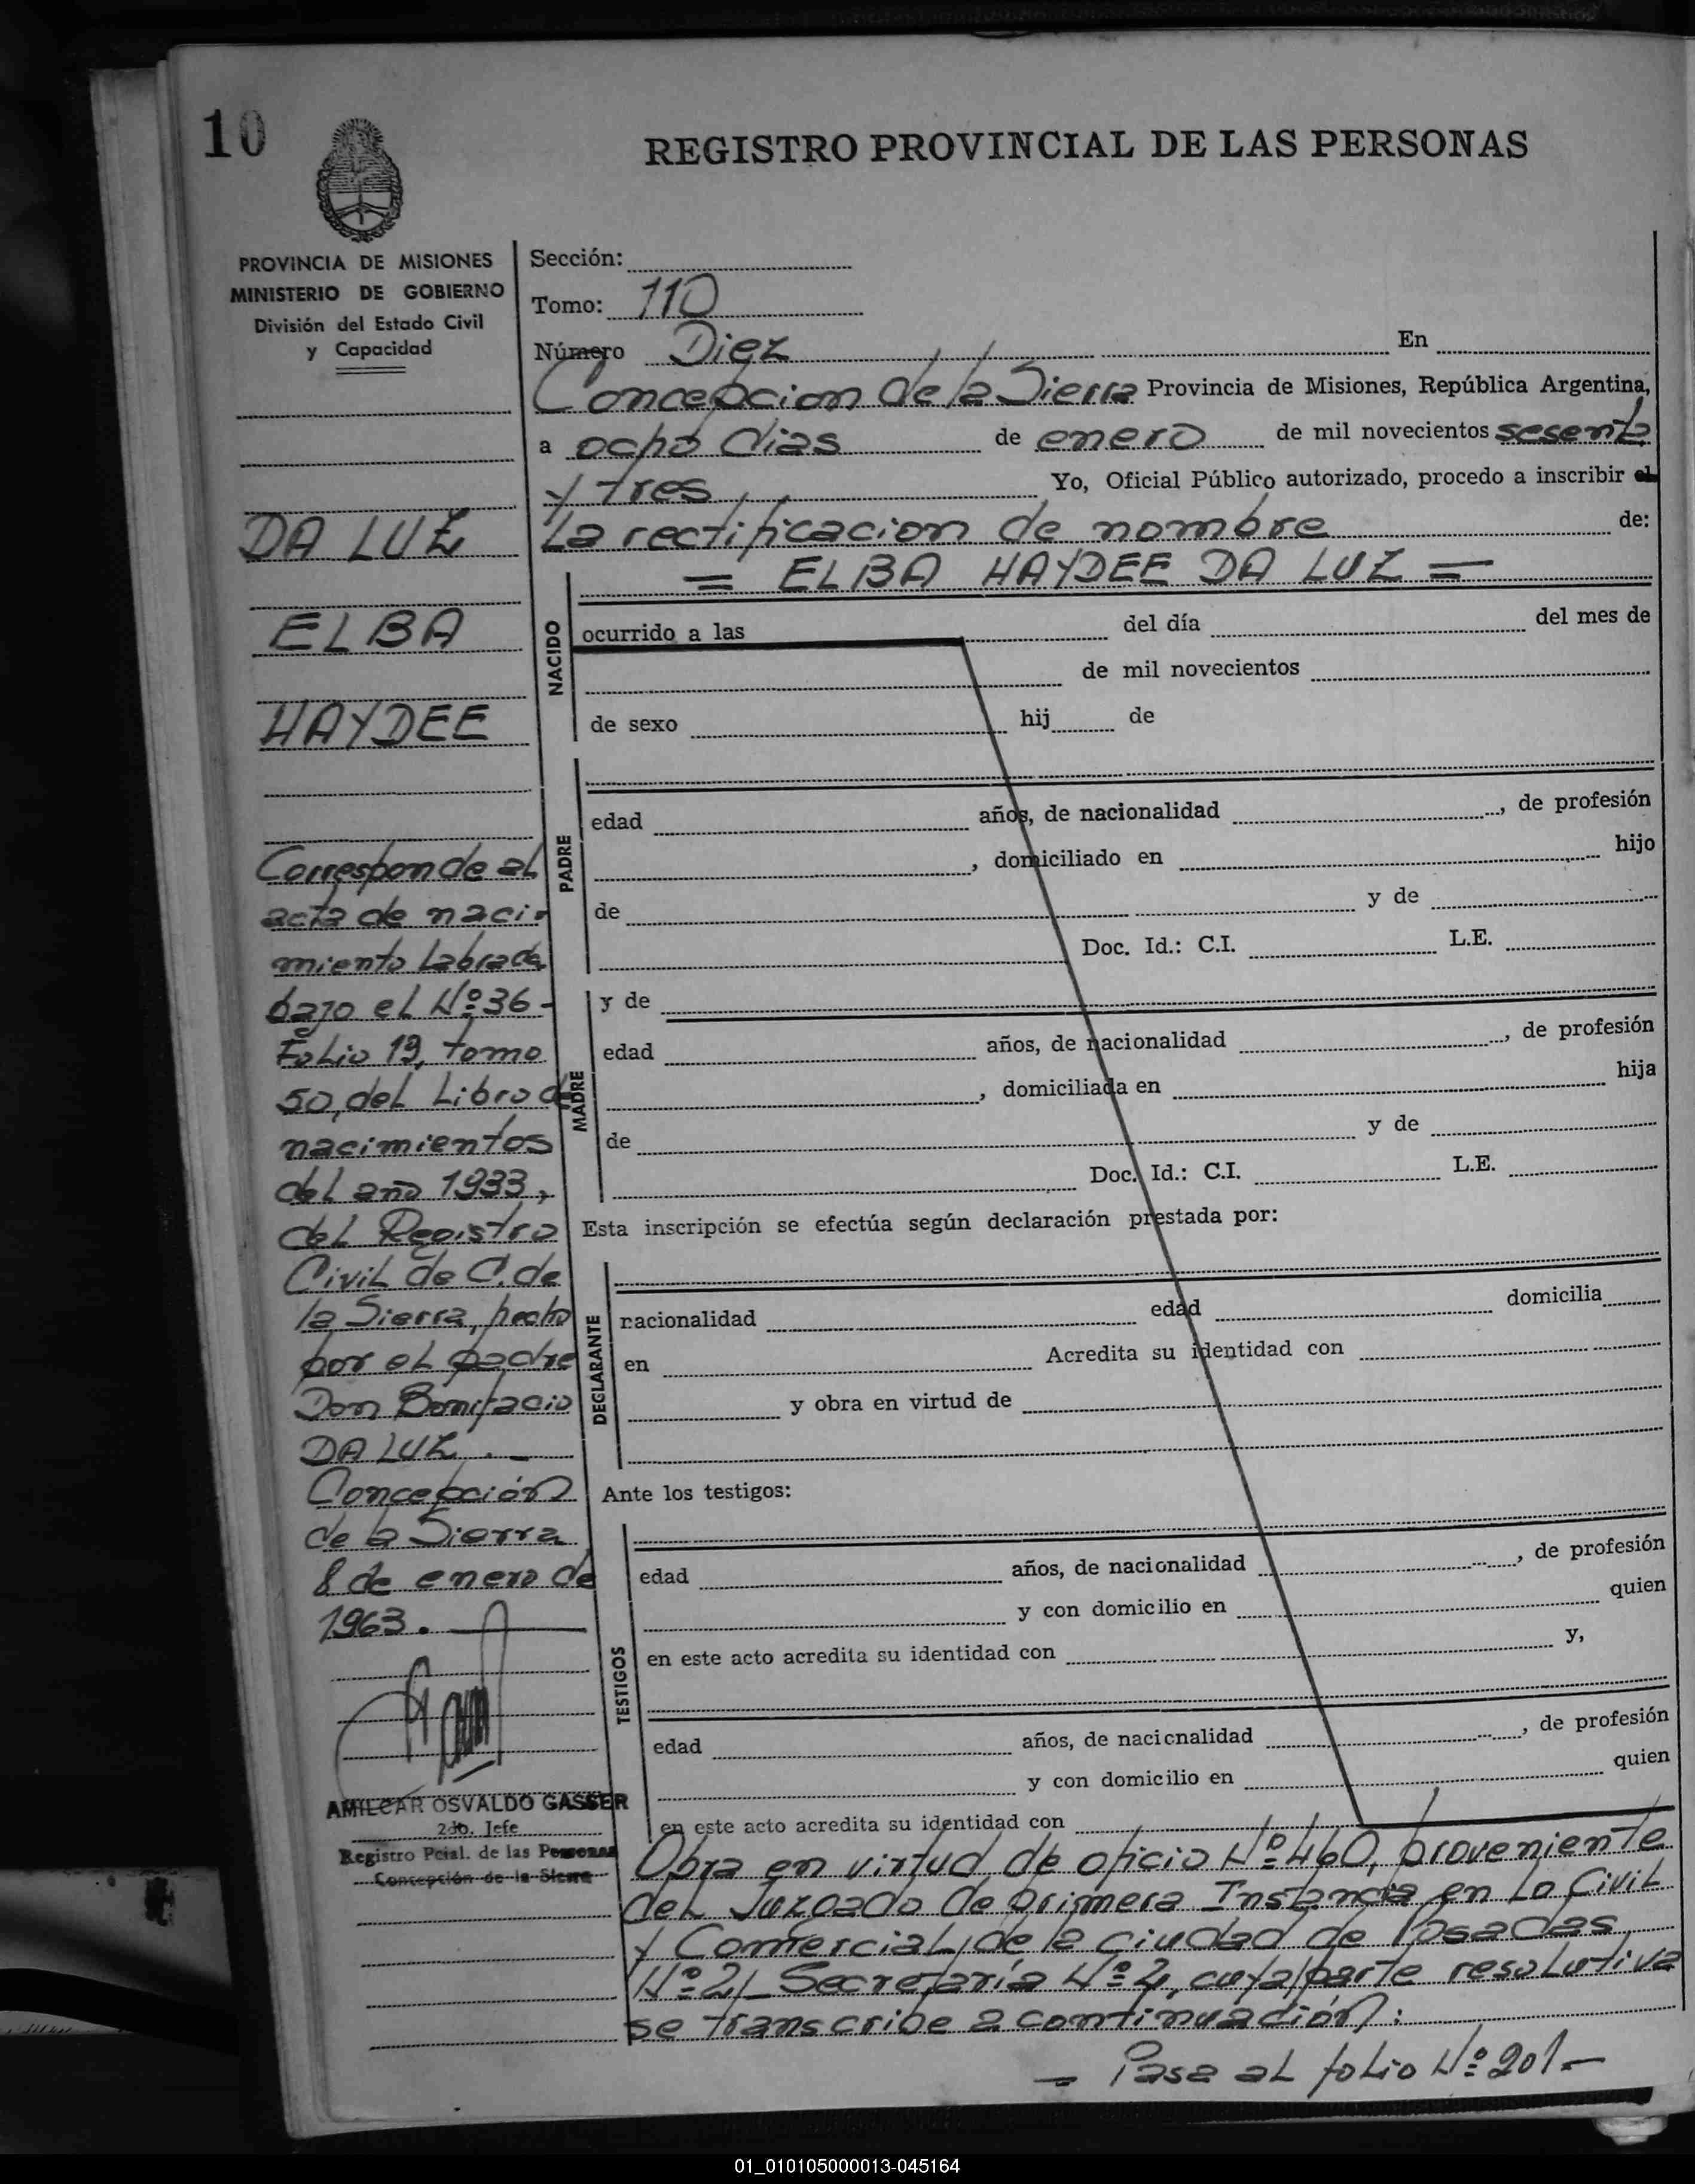 10
REGISTRO PROVINCIAL DE LAS PERSONAS
PROVINCIA DE MISIONES
MINISTERIO DE GOBIERNO
División del Estado Civil
y Capacidad
DA LUZ
ELBA
HAYDEE
Corresponde al
acta de naci-
miento labrada
bajo el Nº 36-
Folio 19, tomo
50, del Libro de
nacimientos
del año 1933,
del Registro
Civil de C. de
la Sierra, hecho
por el padre
Don Bonifacio
DA LUZ.—
Concepción
de la Sierra
8 de enero de
1963.—
AMILCAR OSVALDO GASSER
2do. Jefe
Registro Pcial. de las Personas
Concepción de la Sierra
Sección:
Tomo: 110
Número Diez En
Concepcion de la Sierra Provincia de Misiones, República Argentina,
a ocho dias de enero de mil novecientos sesenta
y tres Yo, Oficial Público autorizado, procedo a inscribir el
la rectificacion de nombre de:
= ELBA HAYDEE DA LUZ =
NACIDO
ocurrido a las del día del mes de
de mil novecientos
de sexo hij de
PADRE
edad años, de nacionalidad , de profesión
, domiciliado en hijo
de y de
Doc. Id.: C.I. L.E.
MADRE
y de
edad años, de nacionalidad , de profesión
, domiciliada en hija
de y de
Doc. Id.: C.I. L.E.
Esta inscripción se efectúa según declaración prestada por:
DECLARANTE
nacionalidad edad domicilia
en Acredita su identidad con
y obra en virtud de
Ante los testigos:
TESTIGOS
edad años, de nacionalidad , de profesión
y con domicilio en quien
en este acto acredita su identidad con y,
edad años, de nacicnalidad , de profesión
y con domicilio en quien
en este acto acredita su identidad con
Obra en virtud de oficio Nº 460, proveniente
del Juzgado de primera Instancia en lo Civil
y Comercial, de la ciudad de Posadas
Nº 2, Secretaría Nº 4, cuya parte resolutiva
se transcribe a continuación:
= Pasa al folio Nº 201—
01_010105000013-045164